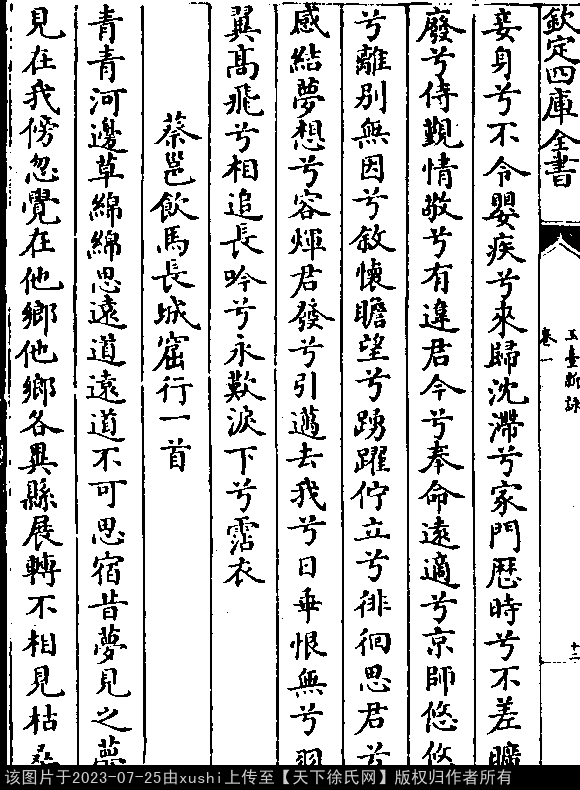 欽定四庫全書
玉臺新詠
卷一
十二
妾身兮不令嬰疾兮來歸沈滯兮家門歴時兮不差曠
廢兮侍覲情敬兮有違君今兮奉命遠適兮京師悠悠
兮離別無因兮敘懷瞻望兮踴躍佇立兮徘徊思君兮
感結夢想兮容煇君發兮引邁去我兮日乖恨無兮羽
翼髙飛兮相追長吟兮永歎淚下兮霑衣
蔡邕飲馬長城窟行一首
青青河邊草綿綿思遠道遠道不可思宿昔夢見之夢
見在我傍忽覺在他鄉他鄉各異縣展轉不相見枯桑
该图片于2023-07-25由xushi上传至【天下徐氏网】版权归作者所有